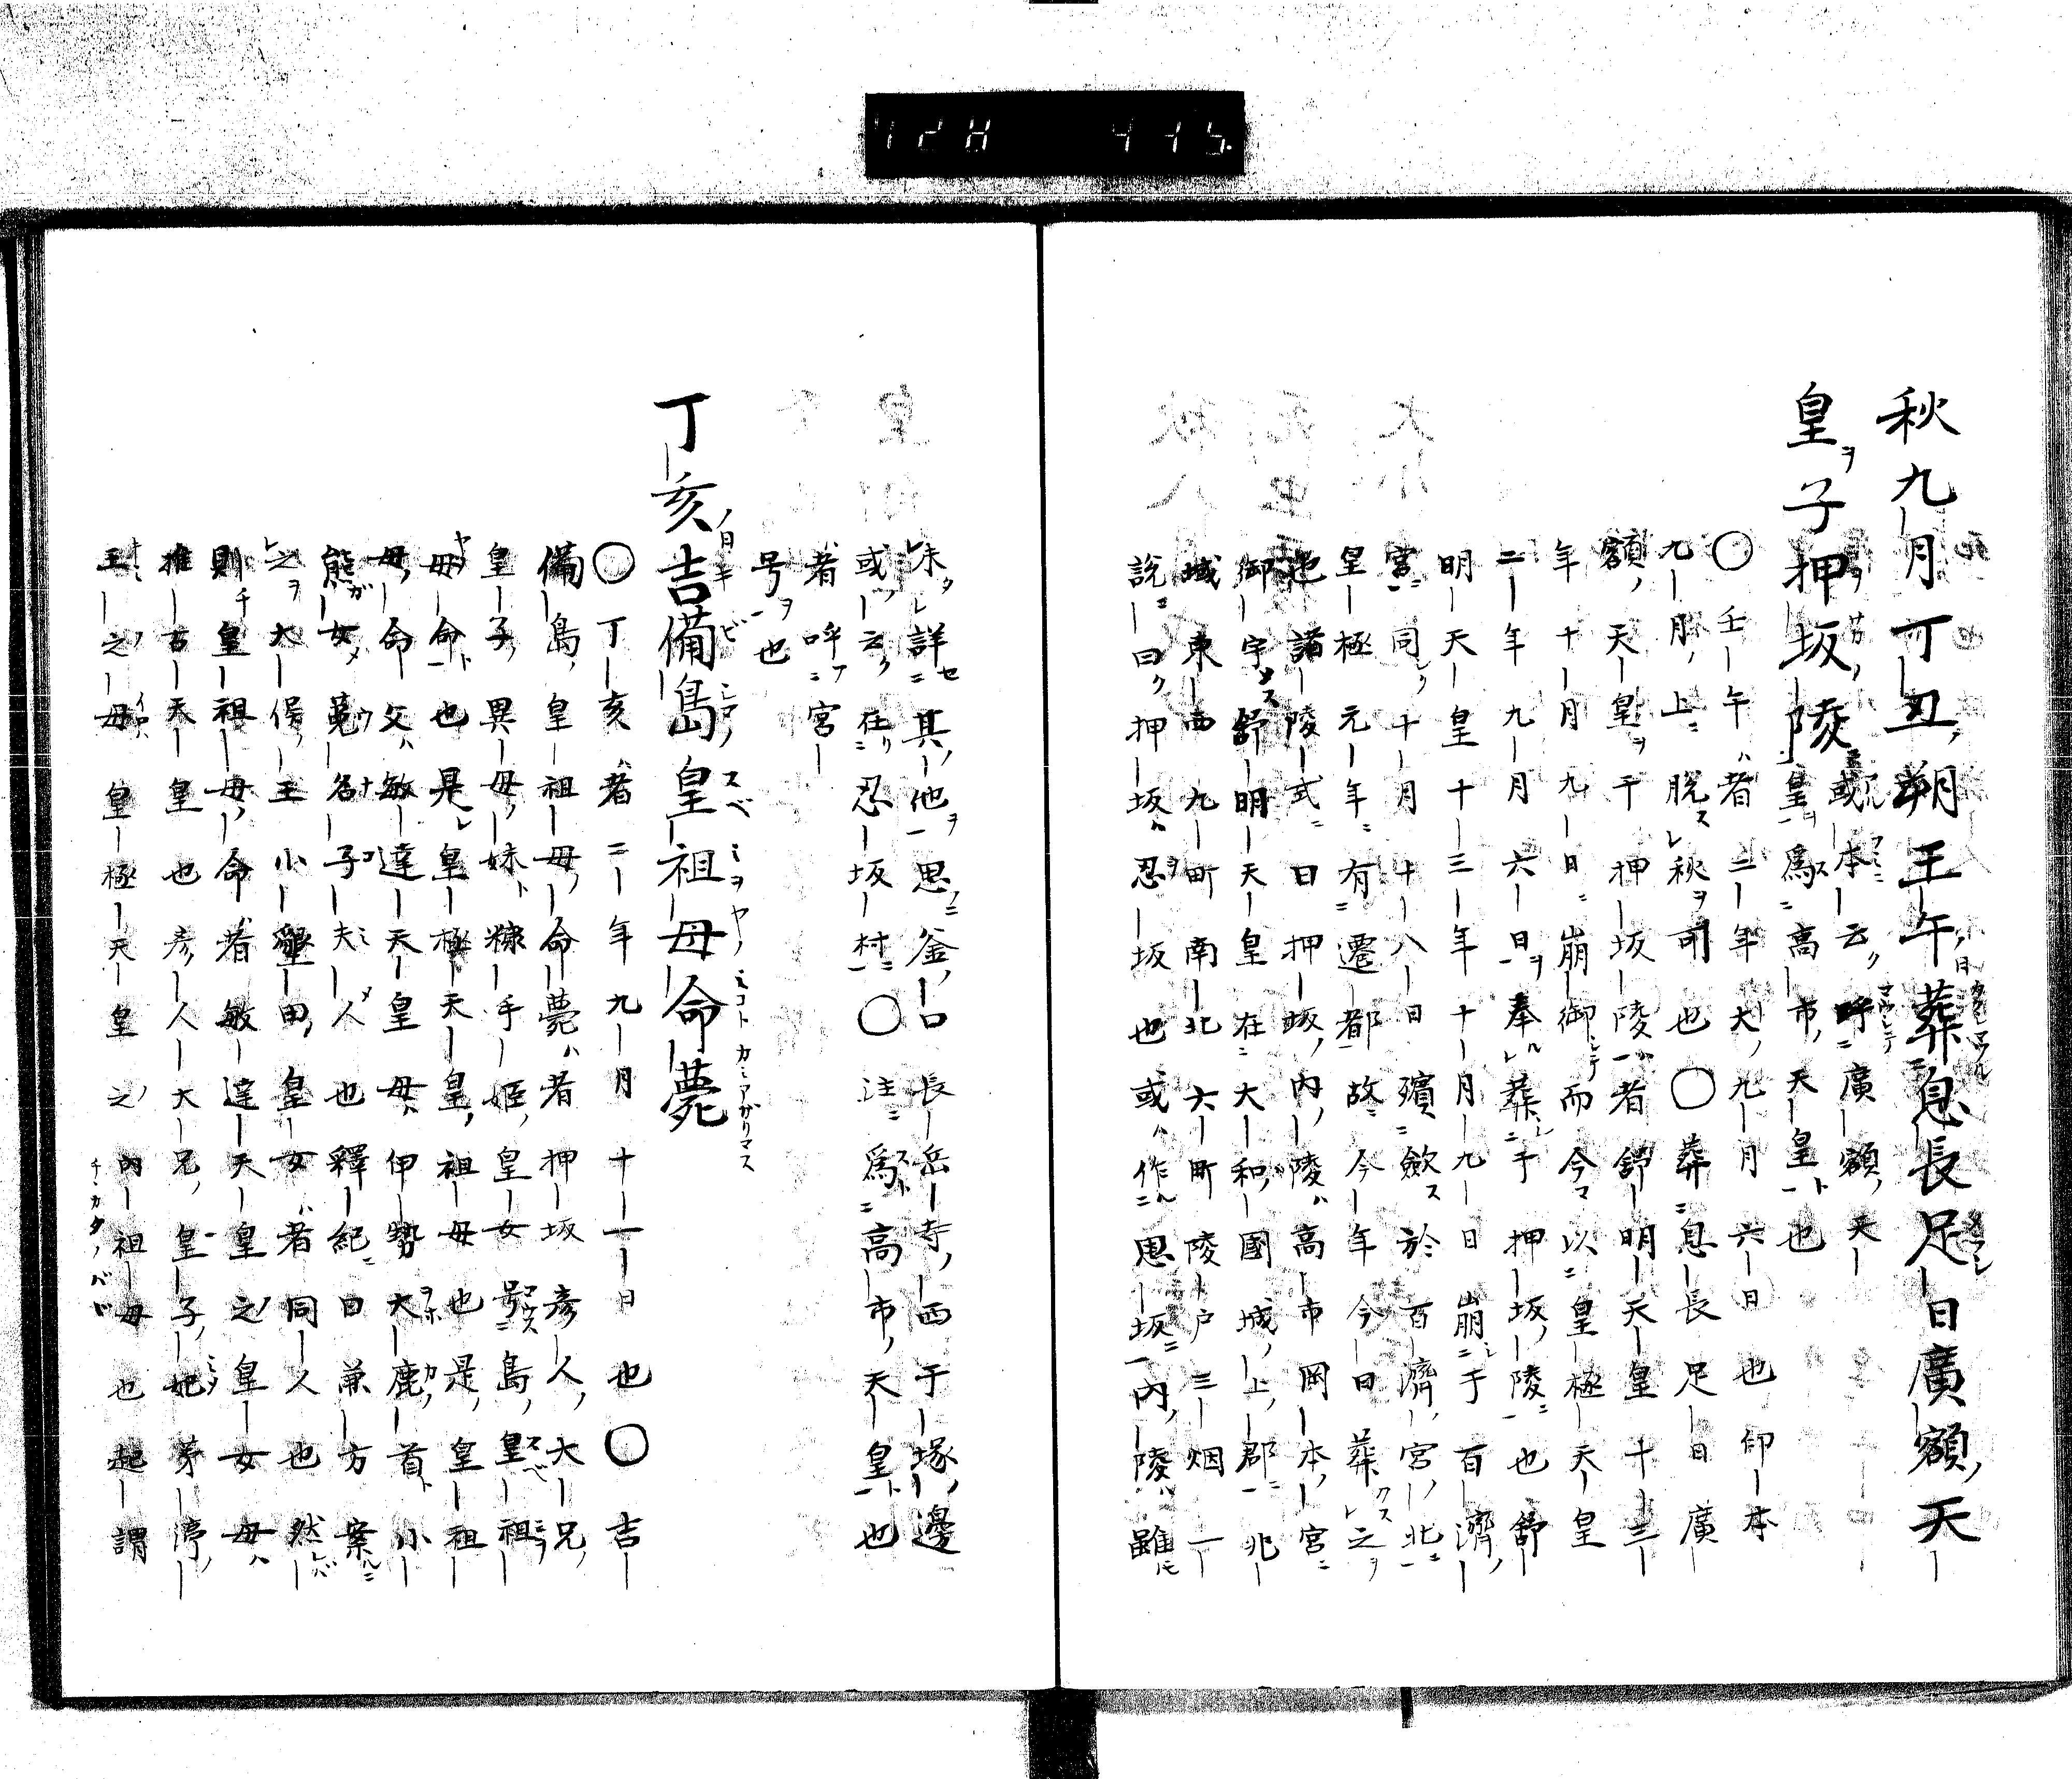 秋九月丁丑朔壬午葬息長足日廣額天
皇子押坂陵或本云呼廣額天
皇爲高市天皇也
〇壬午者二年大九月六日也印本
九月上脱秋可也〇葬息長足日廣
額天皇于押坂陵者舒明天皇十三
年十月九日崩御而今以皇極天皇
二年九月六日奉葬于押坂陵也舒
明天皇十三年十月九日崩于百濟
宮同十月十八日殯歛於百濟宮北
皇極元年有遷都故今年今日葬之
也諸陵式曰押坂内陵高市岡本宮
御宇舒明天皇在大和國城上郡兆
域東西九町南北六町陵戸三烟一
說曰押坂忍坂也或作思坂内陵雖
未詳其他思釜口長岳寺西于塚邊
或云在忍坂村〇注爲高市天皇也
者呼宮
号也
丁亥吉備島皇祖母命薨
〇丁亥者二年九月十一日也〇吉
備島皇祖母命薨者押坂彥人大兄
皇子異母妹糠手姬皇女号島皇祖
母命也是皇極天皇祖母也是皇祖
母命父敏達天皇母伊勢大鹿首小
熊女莵名子夫人也釋紀曰兼方案
之大俣王小墾田皇女者同人也然
則皇祖母命者敏達天皇之皇女母
推古天皇也彥人大兄皇子妃茅渟
王之母皇極天皇之内祖母也起謂
728 415